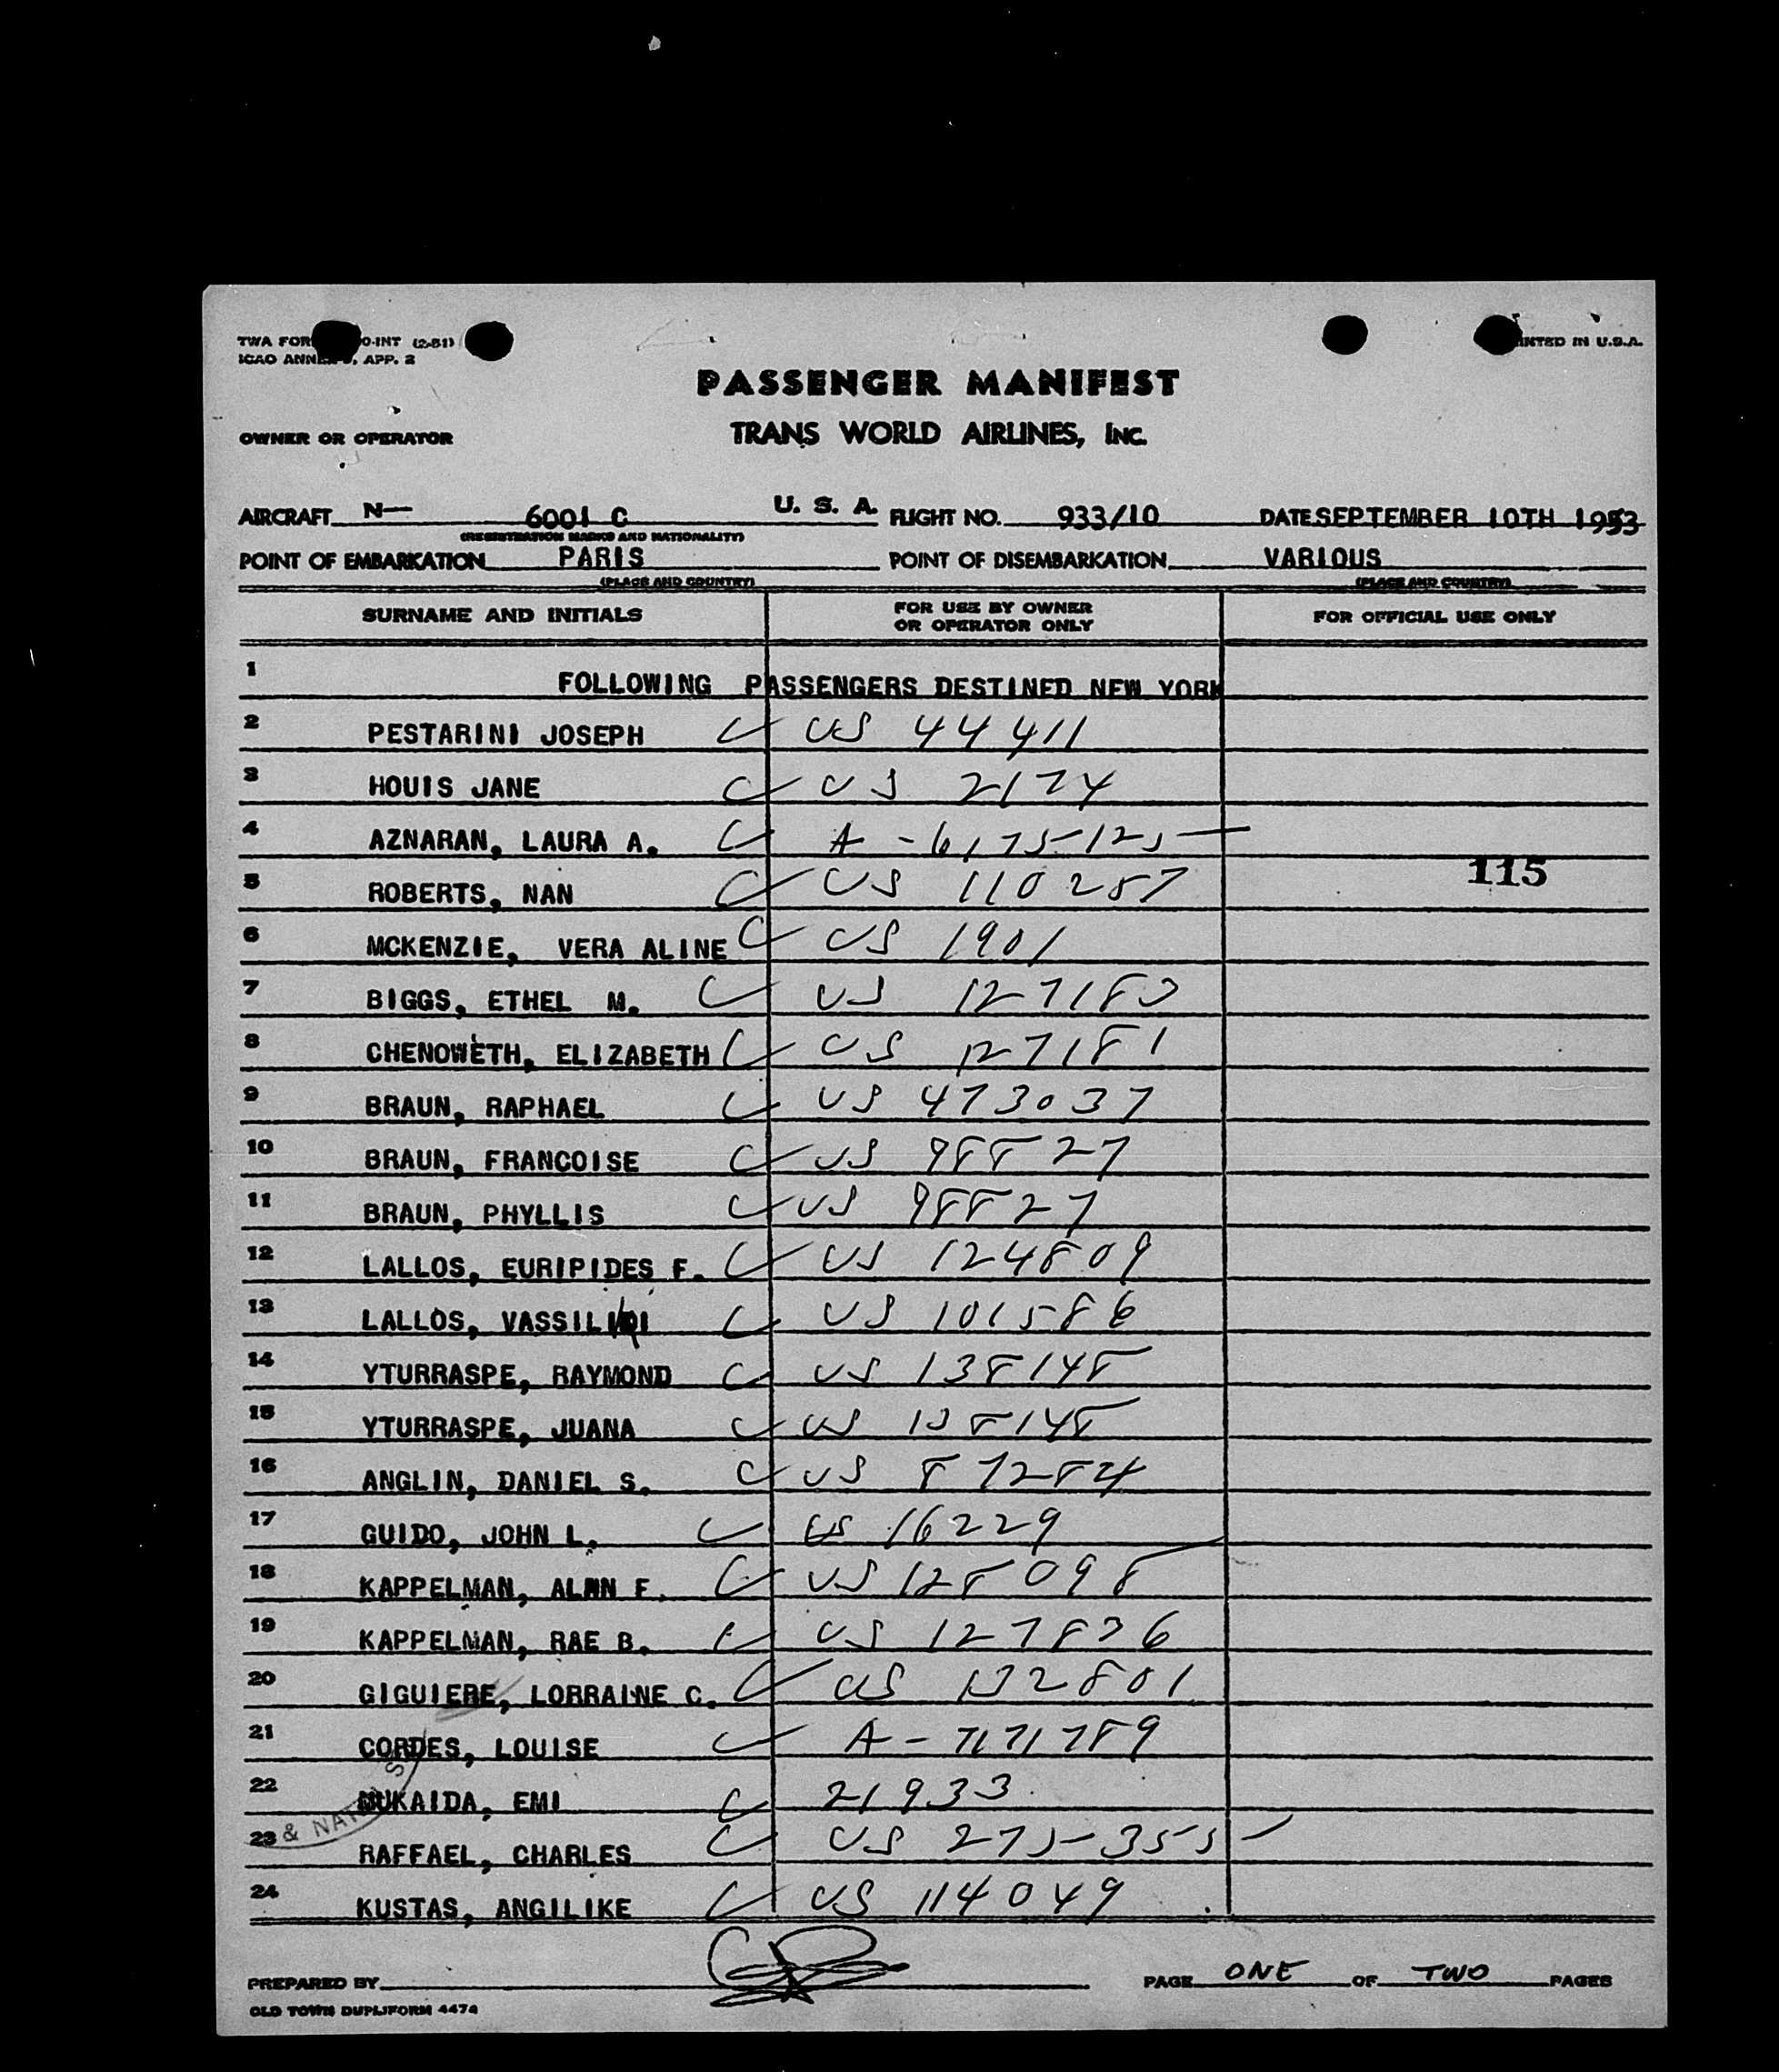 TWA FOR O-INT (2-51)
ICAO ANNE , APP. 2
INTED IN U.S.A.
PASSENGER MANIFEST
OWNER OR OPERATOR TRANS WORLD AIRLINES, INC.
AIRCRAFT N— 6001 C U. S. A. FLIGHT NO. 933/10 DATE SEPTEMBER 10TH 1953
(REGISTRATION MARKS AND NATIONALITY)
POINT OF EMBARKATION PARIS POINT OF DISEMBARKATION VARIOUS
(PLACE AND COUNTRY) (PLACE AND COUNTRY)
SURNAME AND INITIALS FOR USE BY OWNER OR OPERATOR ONLY FOR OFFICIAL USE ONLY
1 FOLLOWING PASSENGERS DESTINED NEW YORK
2 PESTARINI JOSEPH US 44411
3 HOUIS JANE US 2174
4 AZNARAN, LAURA A. A-6175125
115
5 ROBERTS, NAN US 110257
6 MCKENZIE, VERA ALINE US 1901
7 BIGGS, ETHEL M. US
8 CHENOWETH, ELIZABETH US 127181
9 BRAUN, RAPHAEL US 473037
10 BRAUN, FRANCOISE US 98827
11 BRAUN, PHYLLIS US 98827
12 LALLOS, EURIPIDES F. US 124809
13 LALLOS, US 101586
14 YTURRASPE, RAYMOND US 138148
15 YTURRASPE, JUANA US 138148
16 ANGLIN, DANIEL S. US 87284
17 GUIDO, JOHN L. US 16229
18 KAPPELMAN, F. US 128098
19 KAPPELMAN, RAE B. US 127836
20 GIGUIERE, LORRAINE C. US 132801
21 CORDES, LOUISE A-7171789
22 MUKAIDA, EMI 21933
& NAT
23 RAFFAEL, CHARLES US 275355
24 KUSTAS, ANGILIKE US 114049
PREPARED BY PAGE ONE OF TWO PAGES
OLD TOWN DUPLIFORM 4474